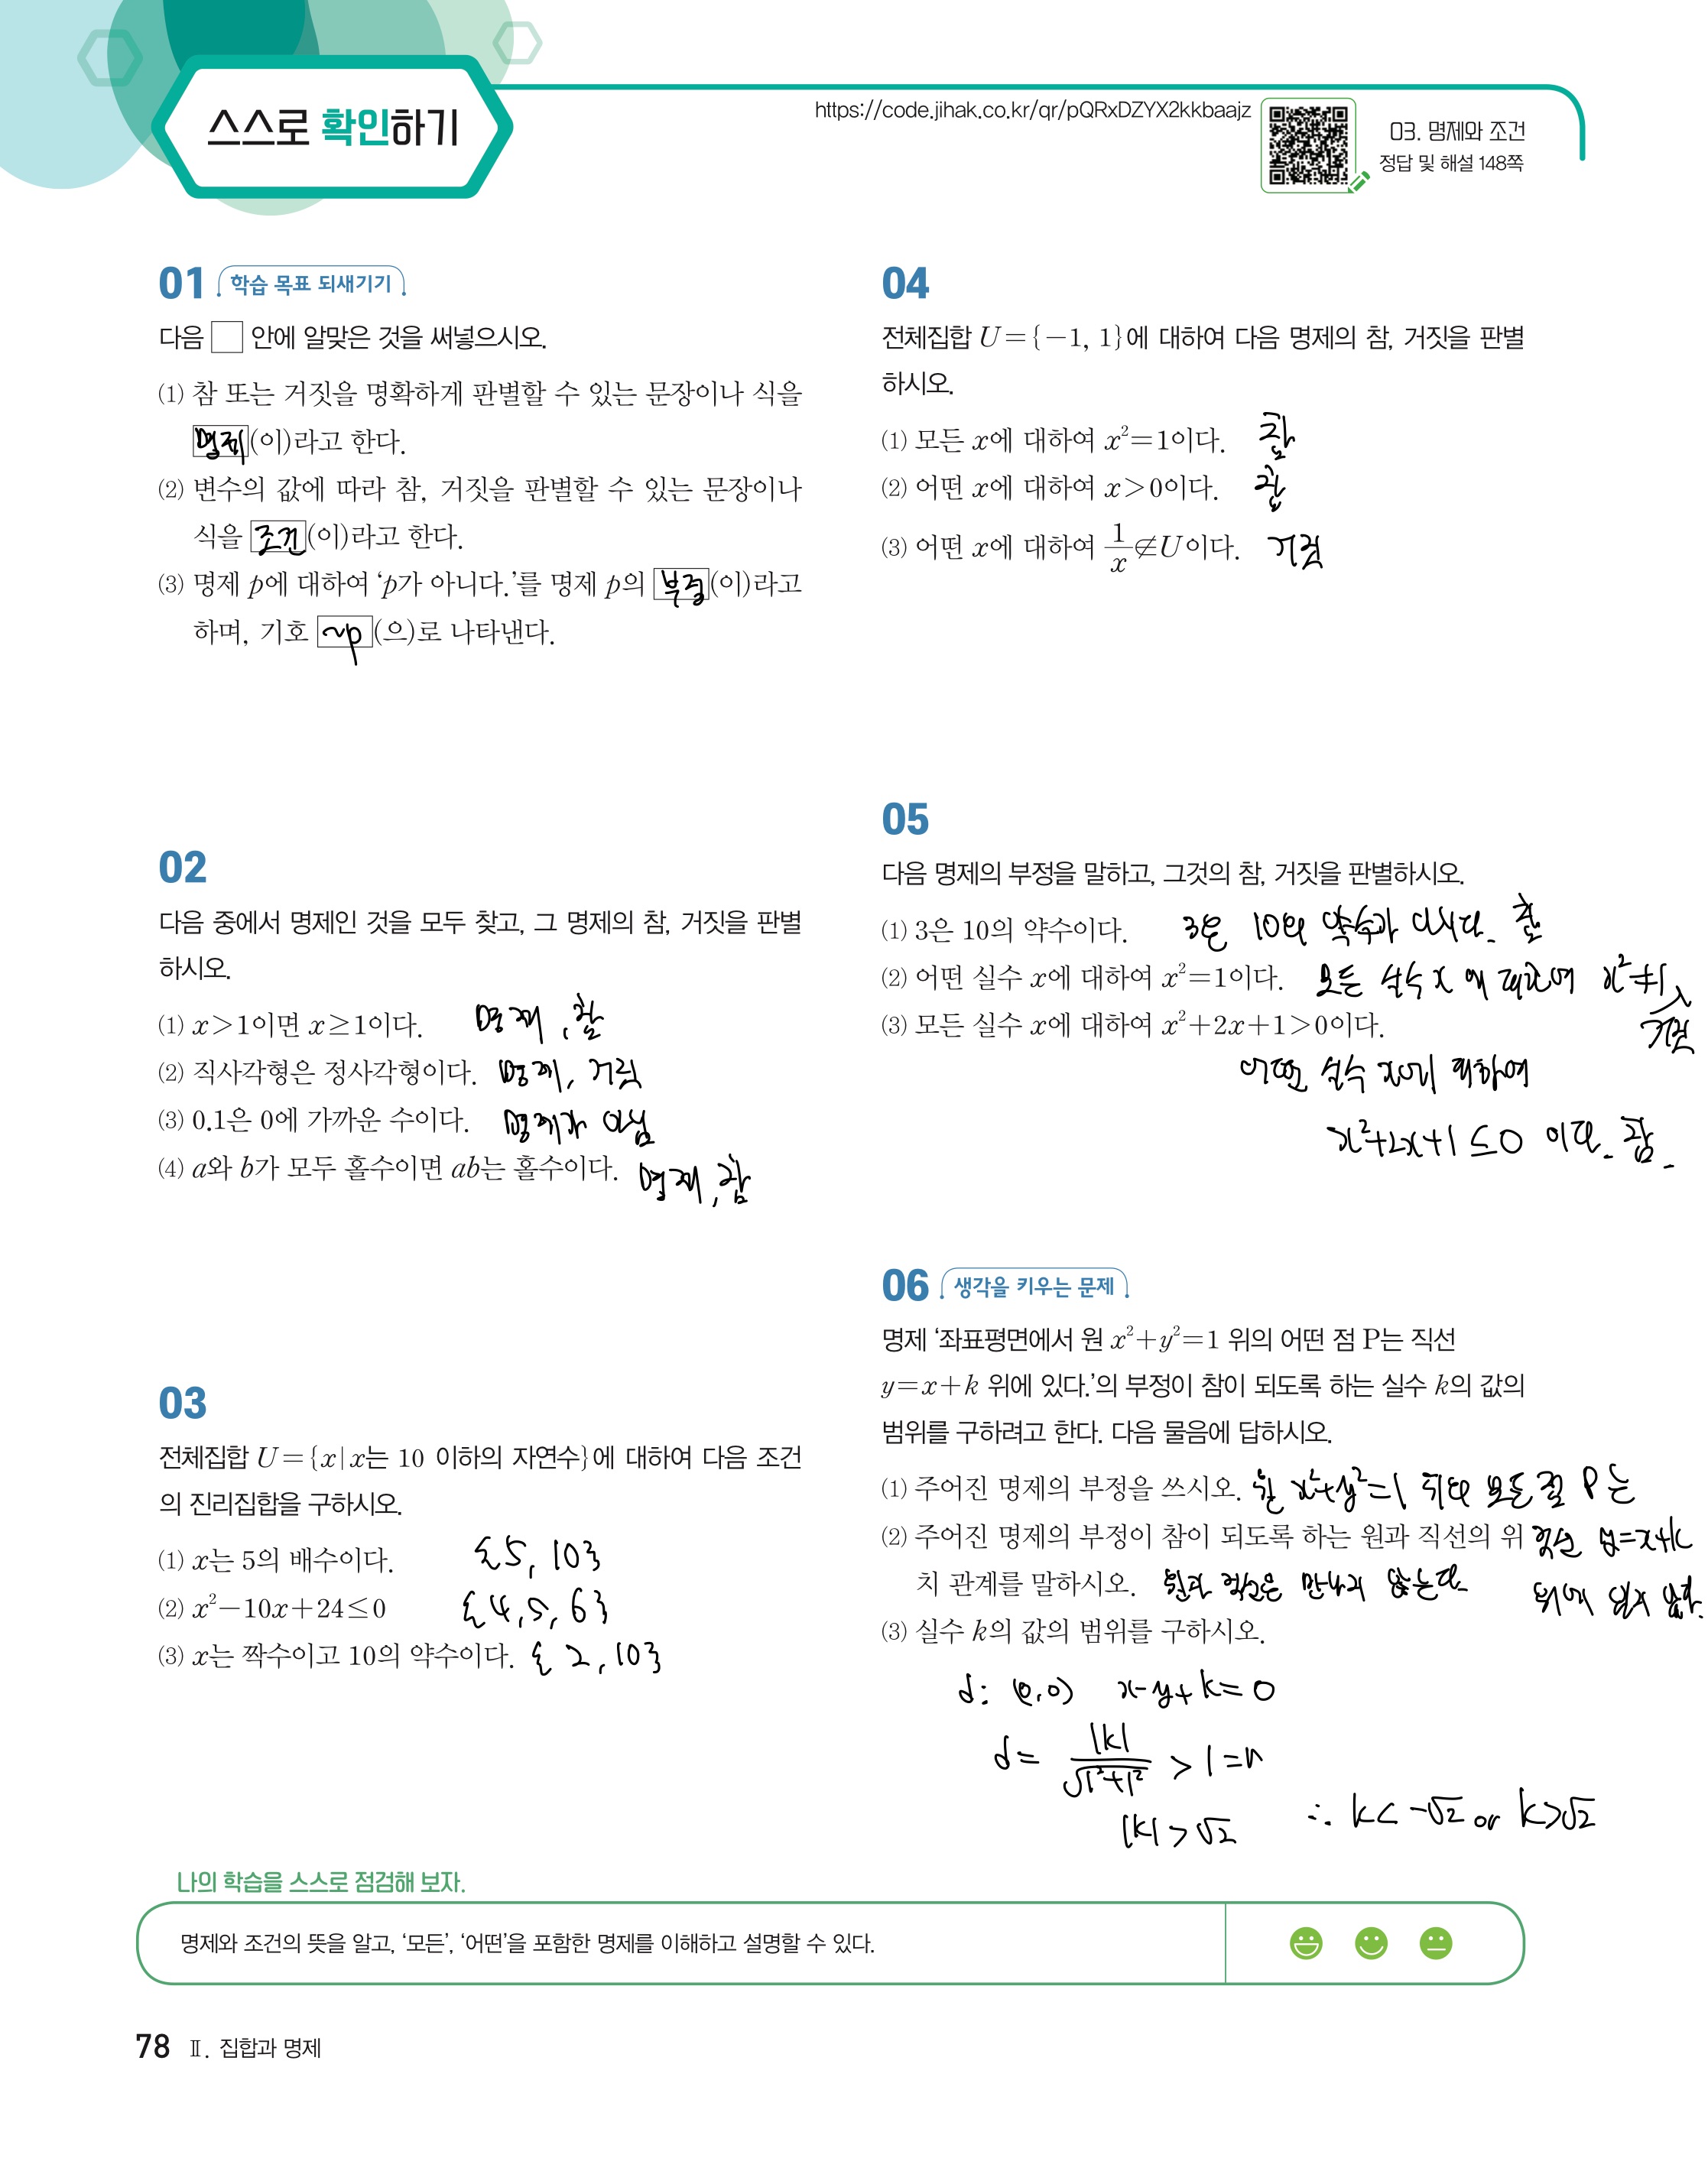 스스로 확인하기
https://code.jihak.co.kr/qr/pQRxDZYX2kkbaajz
03. 명제와 조건
정답 및 해설 148쪽
01 학습 목표 되새기기
다음 □ 안에 알맞은 것을 써넣으시오.
⑴ 참 또는 거짓을 명확하게 판별할 수 있는 문장이나 식을
명제(이)라고 한다.
⑵ 변수의 값에 따라 참, 거짓을 판별할 수 있는 문장이나
식을 조건(이)라고 한다.
⑶ 명제 p에 대하여 ‘p가 아니다.’를 명제 p의 부정(이)라고
하며, 기호 ~p(으)로 나타낸다.
02
다음 중에서 명제인 것을 모두 찾고, 그 명제의 참, 거짓을 판별
하시오.
⑴ x>1이면 x≥1이다. 명제, 참
⑵ 직사각형은 정사각형이다. 명제, 거짓
⑶ 0.1은 0에 가까운 수이다. 명제가 아님
⑷ a와 b가 모두 홀수이면 ab는 홀수이다. 명제, 참
03
전체집합 U={x|x는 10 이하의 자연수}에 대하여 다음 조건
의 진리집합을 구하시오.
⑴ x는 5의 배수이다. {5, 10}
⑵ x²-10x+24≤0 {4, 5, 6}
⑶ x는 짝수이고 10의 약수이다. {2, 10}
04
전체집합 U={-1, 1}에 대하여 다음 명제의 참, 거짓을 판별
하시오.
⑴ 모든 x에 대하여 x²=1이다. 참
⑵ 어떤 x에 대하여 x>0이다. 참
⑶ 어떤 x에 대하여 1/x∉U이다. 거짓
05
다음 명제의 부정을 말하고, 그것의 참, 거짓을 판별하시오.
⑴ 3은 10의 약수이다. 3은 10의 약수가 아니다. 참
⑵ 어떤 실수 x에 대하여 x²=1이다. 모든 실수 x에 대하여 x²≠1,
거짓
⑶ 모든 실수 x에 대하여 x²+2x+1>0이다.
어떤 실수 x에 대하여
x²+2x+1≤0 이다. 참.
06 생각을 키우는 문제
명제 ‘좌표평면에서 원 x²+y²=1 위의 어떤 점 P는 직선
y=x+k 위에 있다.’의 부정이 참이 되도록 하는 실수 k의 값의
범위를 구하려고 한다. 다음 물음에 답하시오.
⑴ 주어진 명제의 부정을 쓰시오. 원 x²+y²=1 위의 모든 점 P는
직선 y=x+k
위에 있지 않다.
⑵ 주어진 명제의 부정이 참이 되도록 하는 원과 직선의 위
치 관계를 말하시오. 원과 직선은 만나지 않는다.
⑶ 실수 k의 값의 범위를 구하시오.
d: (0,0) x-y+k=0
d= |k|/√(1²+1²) > 1=r
|k|>√2 ∴ k<-√2 or k>√2
나의 학습을 스스로 점검해 보자.
명제와 조건의 뜻을 알고, ‘모든’, ‘어떤’을 포함한 명제를 이해하고 설명할 수 있다.
78 Ⅱ. 집합과 명제